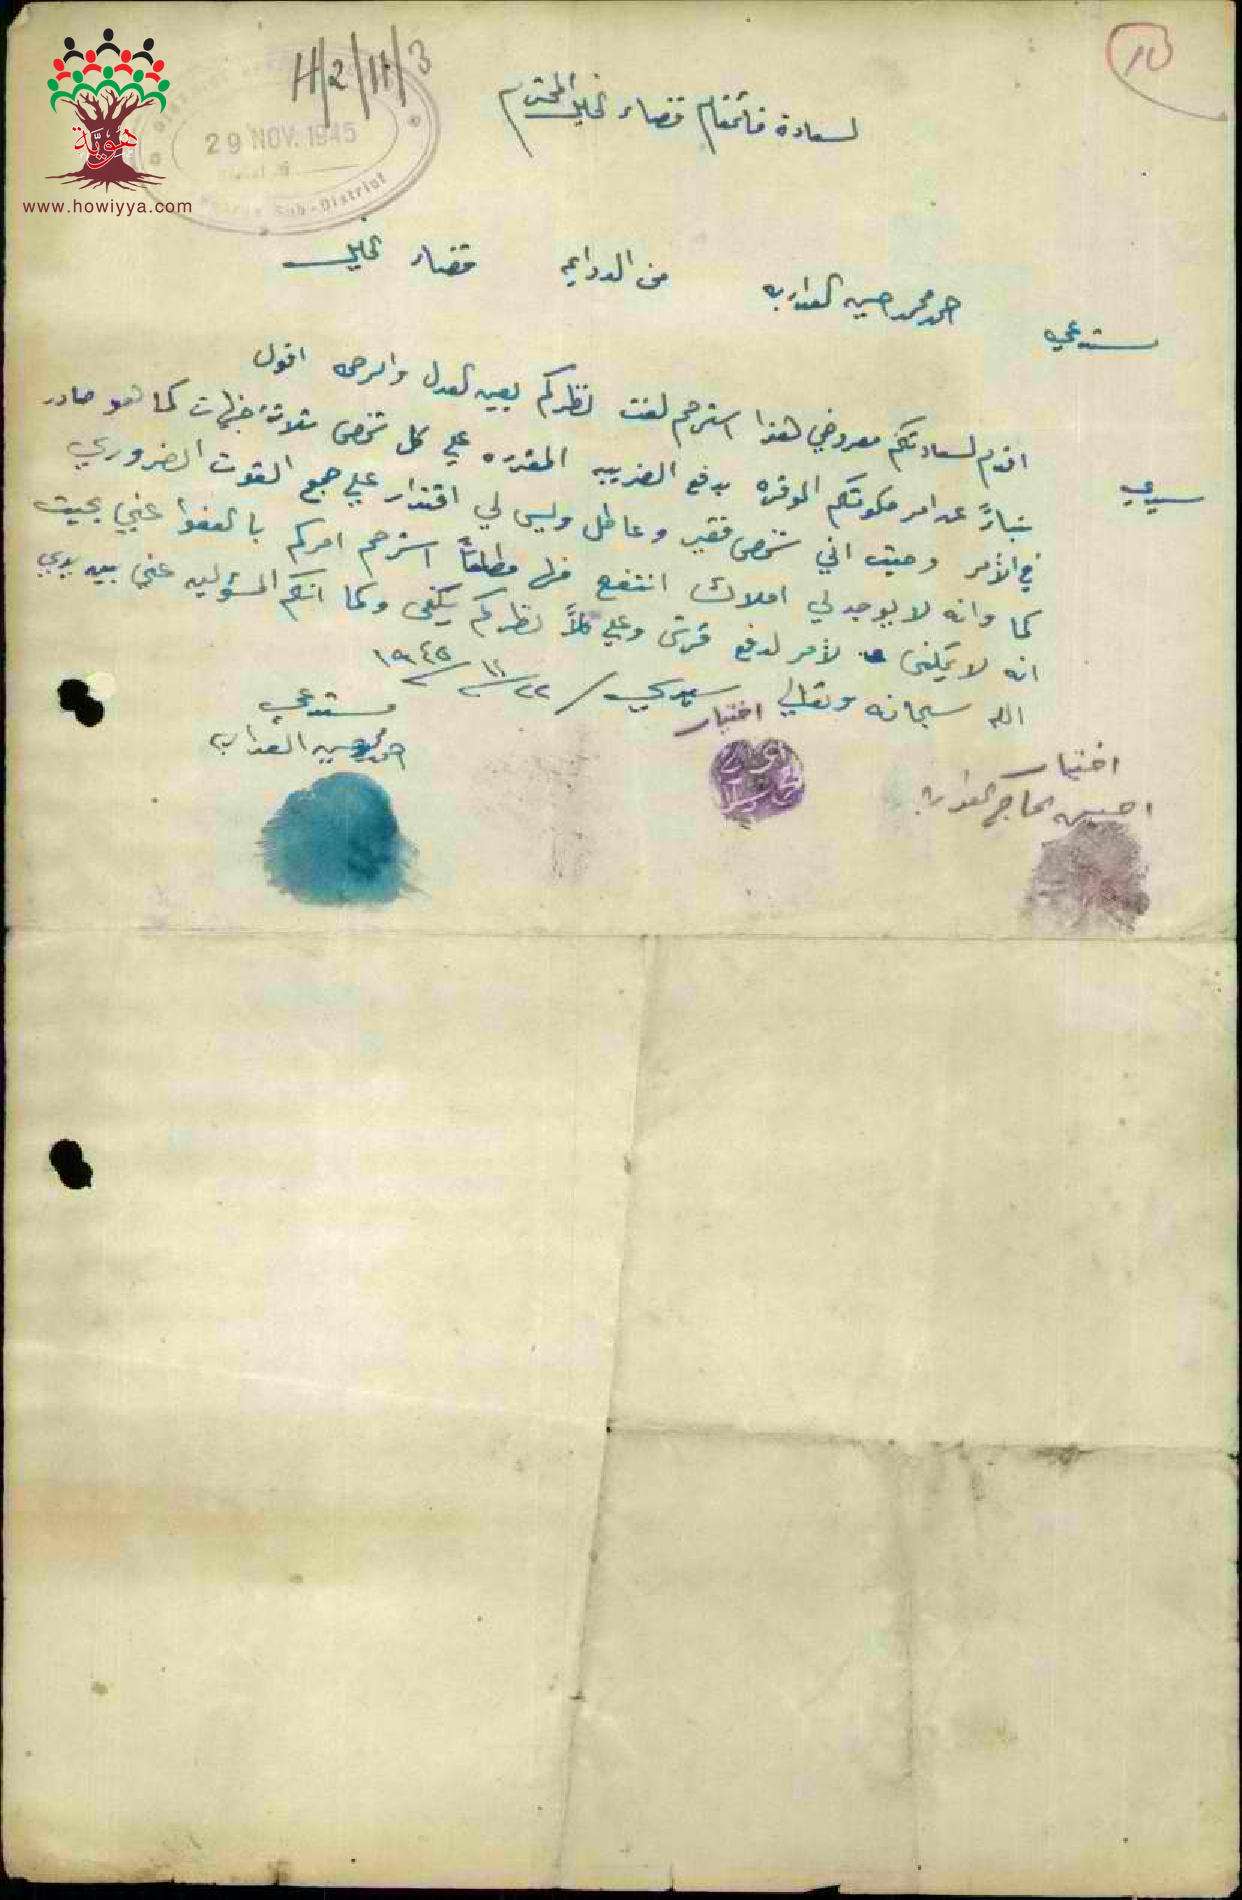 هوية
www.howiyya.com
11/2/11/3
29 NOV. 1945
Sub-District
10
لسعادة قائمقام قضاء الخليل المحترم
مستدعي
احمد محمد حسين العذاربه من الدوايمه قضاء الخليل
سيدي
اقدم لسعادتكم معروضي هذا استرحم لفت نظركم بعين العدل والرحمه اقول
بناءً عن امر حكومتكم الموقره بدفع الضريبه المقرره علي كل شخص ثلاثة جنيهات كما هو صادر
في الأمر وحيث اني شخص فقير وعاطل وليس لي اقتدار علي جمع القوت الضروري
كما وانه لا يوجد لي املاك انتفع منها مطلقاً استرحم امركم بالعفوا عني بحيث
انه لا يمكني لأمر لدفع قرش وعلي كلاً نظركم يكفي وكما انكم المسؤلين عني بين يدي
الله سبحانه وتعالي سيدي ٢٢/١١/١٩٤٥
مستدعي
احمد محمد حسين العذاربه
اختيار
اختيار
احسين الحاج العذاربه